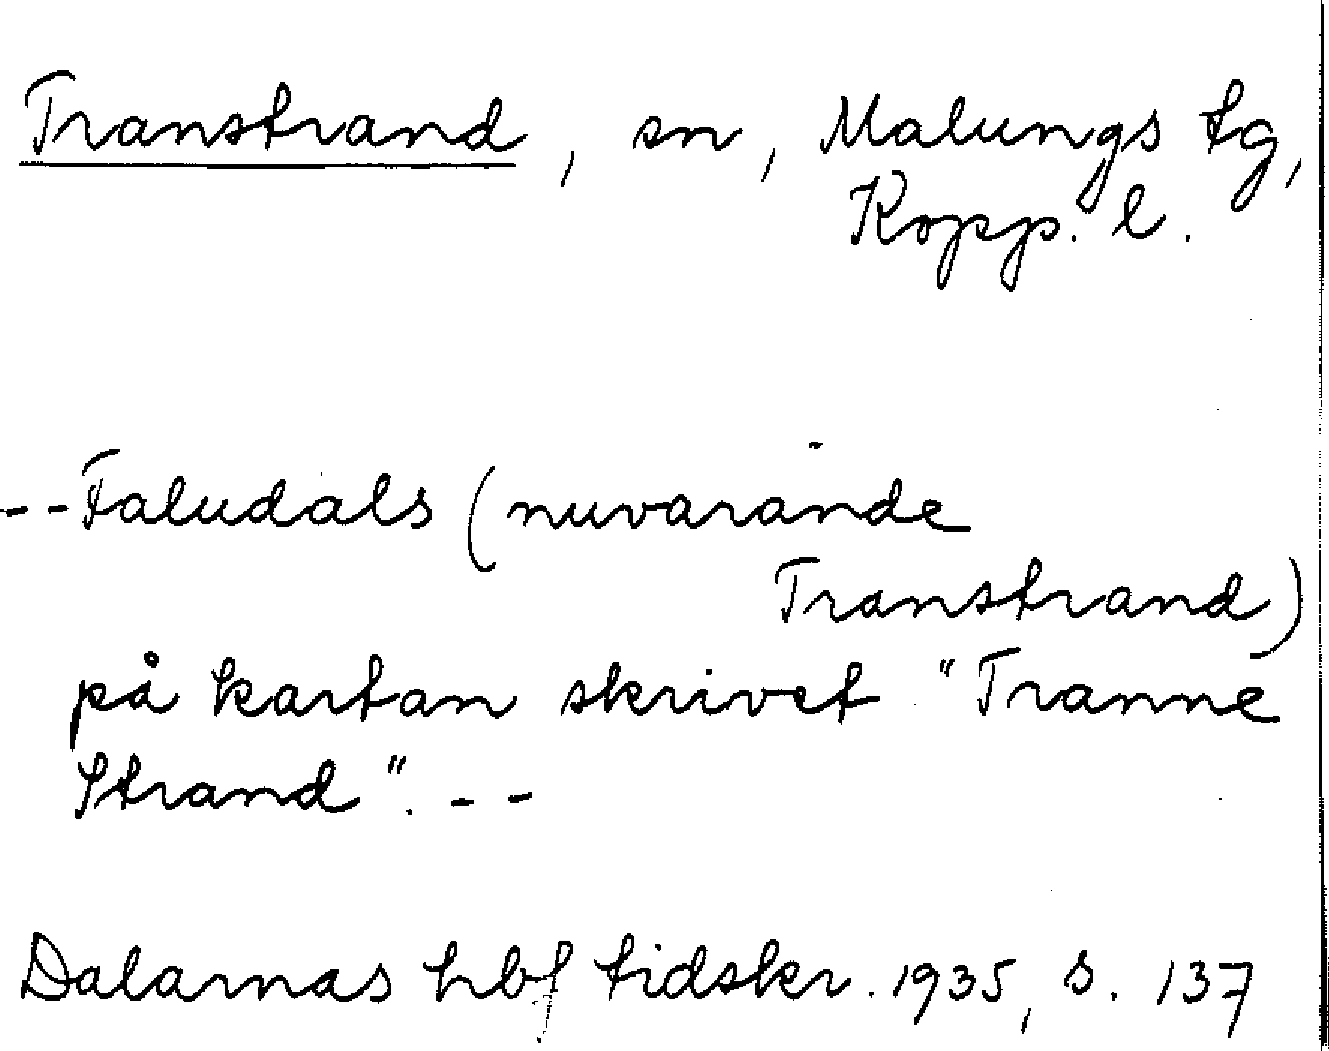 Transtrand, sn, Malungs tg,
Kopp. l.
-- Faludals (nuvarande
Transtrand)
på kartan skrivet "Tranne
Strand". --
Dalarnas hbf tidskr. 1935, s. 137